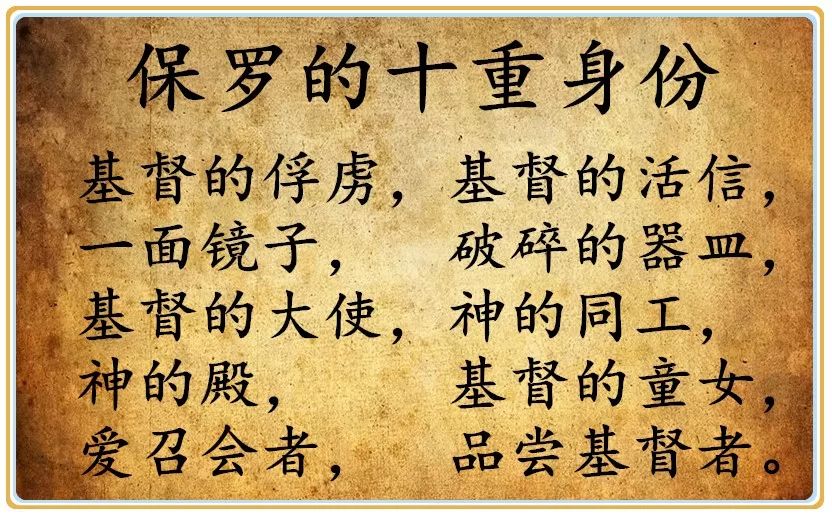 保罗的十重身份
基督的俘虏，基督的活信，
一面镜子，破碎的器皿，
基督的大使，神的同工，
神的殿，基督的童女，
爱召会者，品尝基督者。